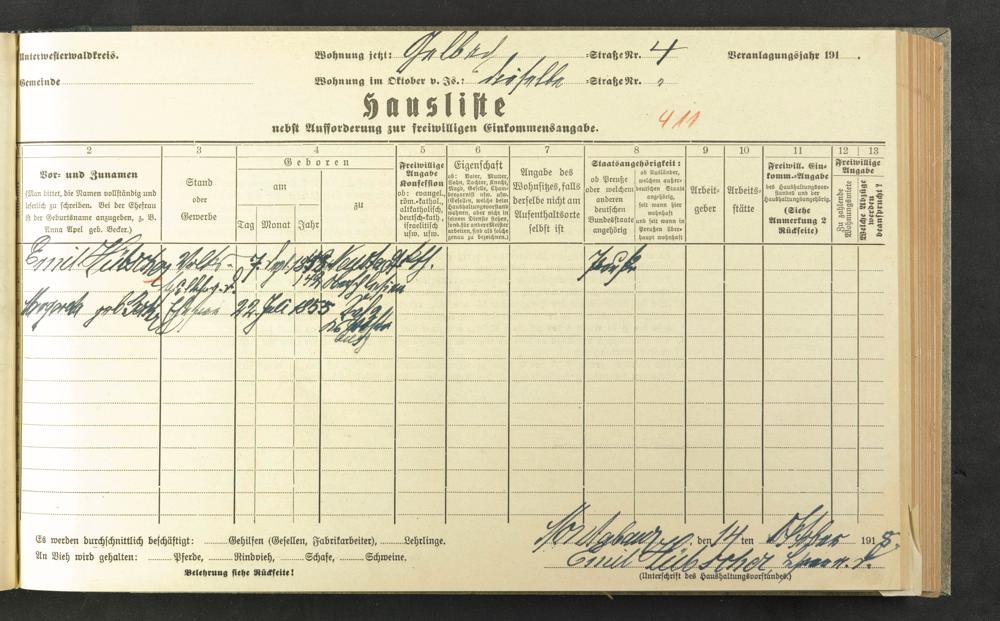 Unterwesterwaldkreis. Wohnung jetzt: Gelbach -Straße Nr. 4 Veranlagungsjahr 191 .
Gemeinde Wohnung im Oktober v. Js.: dieselbe -Straße Nr. "
Hausliste
nebst Aufforderung zur freiwilligen Einkommensangabe.
411
2 3 4 5 6 7 8 9 10 11 12 13
Vor- und Zunamen
(Man bittet, die Namen vollständig und
leserlich zu schreiben. Bei der Ehefrau
ist der Geburtsname anzugeben, z. B.
Anna Apel geb. Becker.)
Stand
oder
Gewerbe
Geboren
am
Tag Monat Jahr
zu
Freiwillige
Angabe
Konfession
ob: evangel.,
röm.-kathol.,
altkatholisch,
deutsch-kath.,
israelitisch
usw. usw.
Eigenschaft
ob: Vater, Mutter,
Sohn, Tochter, Knecht,
Magd, Geselle,
Angabe des
Wohnsitzes, falls
derselbe nicht am
Aufenthaltsorte
selbst ist
Staatsangehörigkeit:
ob Preuße
oder welchem
anderen
deutschen
Bundesstaat
angehörig
ob Ausländer,
welchem außer-
deutschen Staate
angehörig,
seit wann hier
wohnhaft
und seit wann in
Preußen über-
haupt wohnhaft
Arbeit-
geber
Arbeits-
stätte
Freiwill. Ein-
komm.-Angabe
des Haushaltungsvor-
standes und der
Haushaltungsangehörig.
(Siehe
Anmerkung 2
Rückseite)
Freiwillige
Angabe
Zu zahlende
Wohnungsmiete
Welche Abzüge
werden
beansprucht?
Emil Hübscher 7. 1858
geb. Ehefrau 22. Juli 1855
Es werden durchschnittlich beschäftigt: Gehilfen (Gesellen, Fabrikarbeiter), Lehrlinge.
An Vieh wird gehalten: Pferde, Rindvieh, Schafe, Schweine.
Belehrung siehe Rückseite!
Montabaur, den 14 ten Oktober 1918.
Emil Hübscher
(Unterschrift des Haushaltungsvorstandes.)